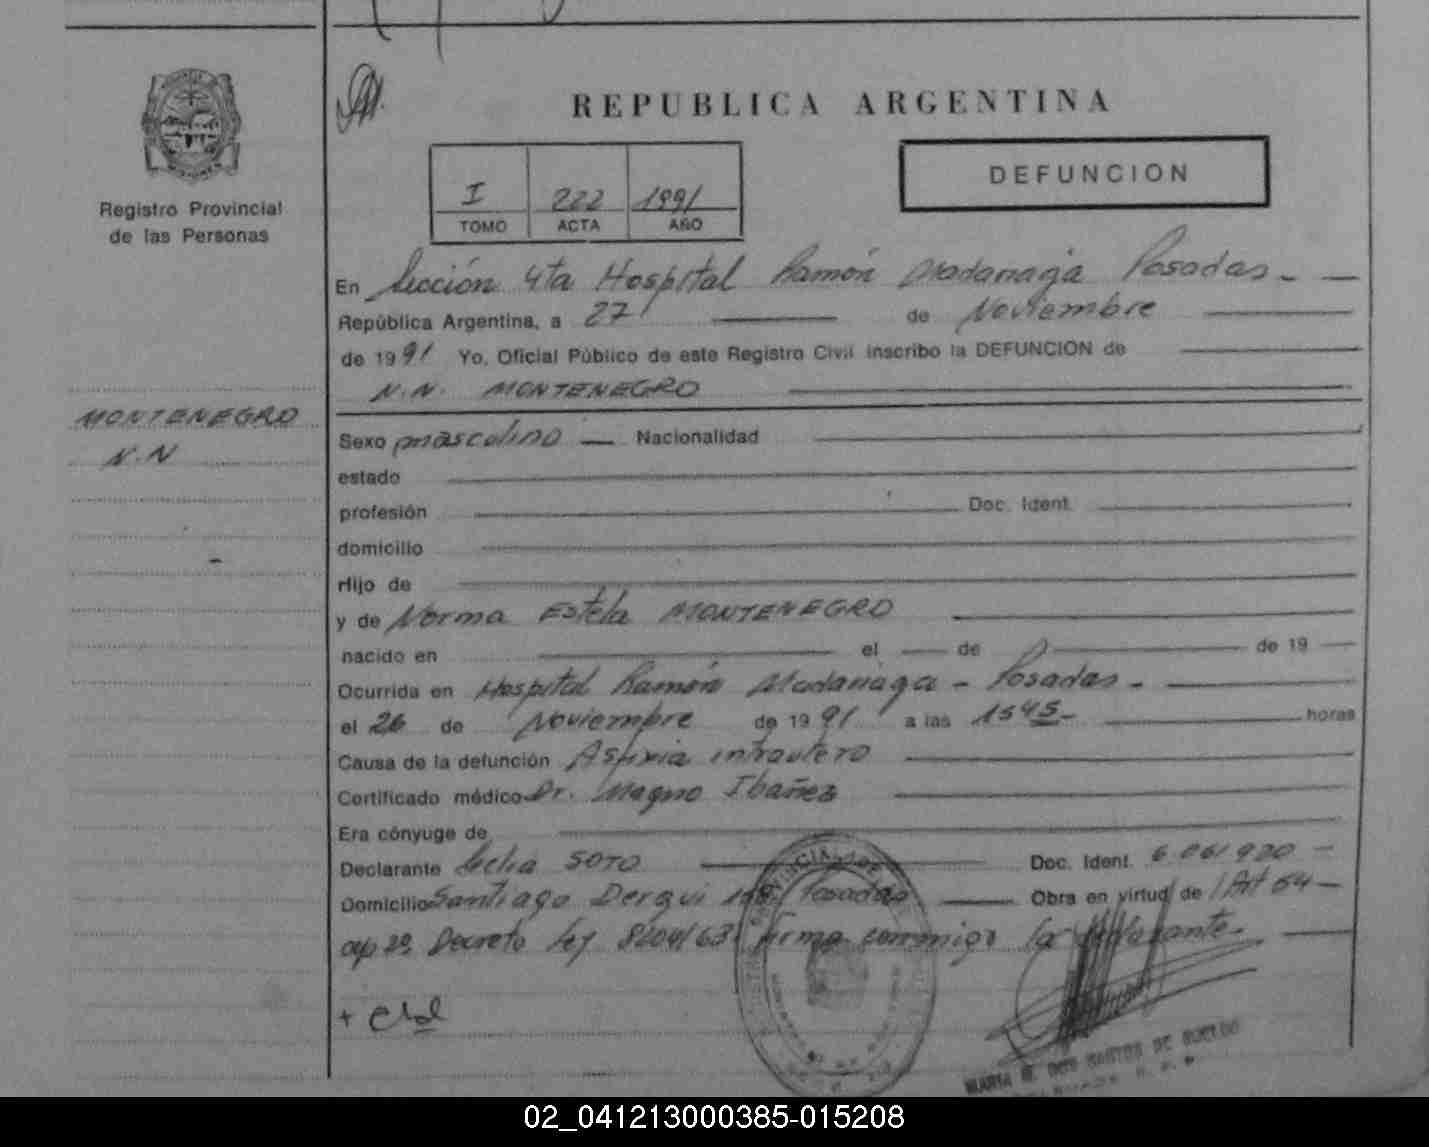 REPUBLICA ARGENTINA
Registro Provincial
de las Personas
I 222 1991
TOMO ACTA AÑO
DEFUNCION
En Sección 4ta Hospital Ramón Madariaga Posadas - —
República Argentina, a 27 de Noviembre
de 1991 Yo, Oficial Público de este Registro Civil inscribo la DEFUNCION de
N.N. MONTENEGRO
MONTENEGRO
N.N
Sexo masculino — Nacionalidad
estado
profesión Doc. Ident.
domicilio
Hijo de
y de Norma Estela MONTENEGRO
nacido en el de de 19
Ocurrida en Hospital Ramón Madariaga - Posadas -
el 26 de Noviembre de 1991 a las 1545- horas
Causa de la defunción Asfixia intrautero
Certificado médico Dr. Magno Ibañez
Era cónyuge de
Declarante SOTO Doc. Ident. 6.061.920 -
Domicilio Santiago Derqui Posadas Obra en virtud de Art 64 -
Decreto Ley 8204/63 firma conmigo la declarante.
MARIA DOS SANTOS DE
02_041213000385-015208